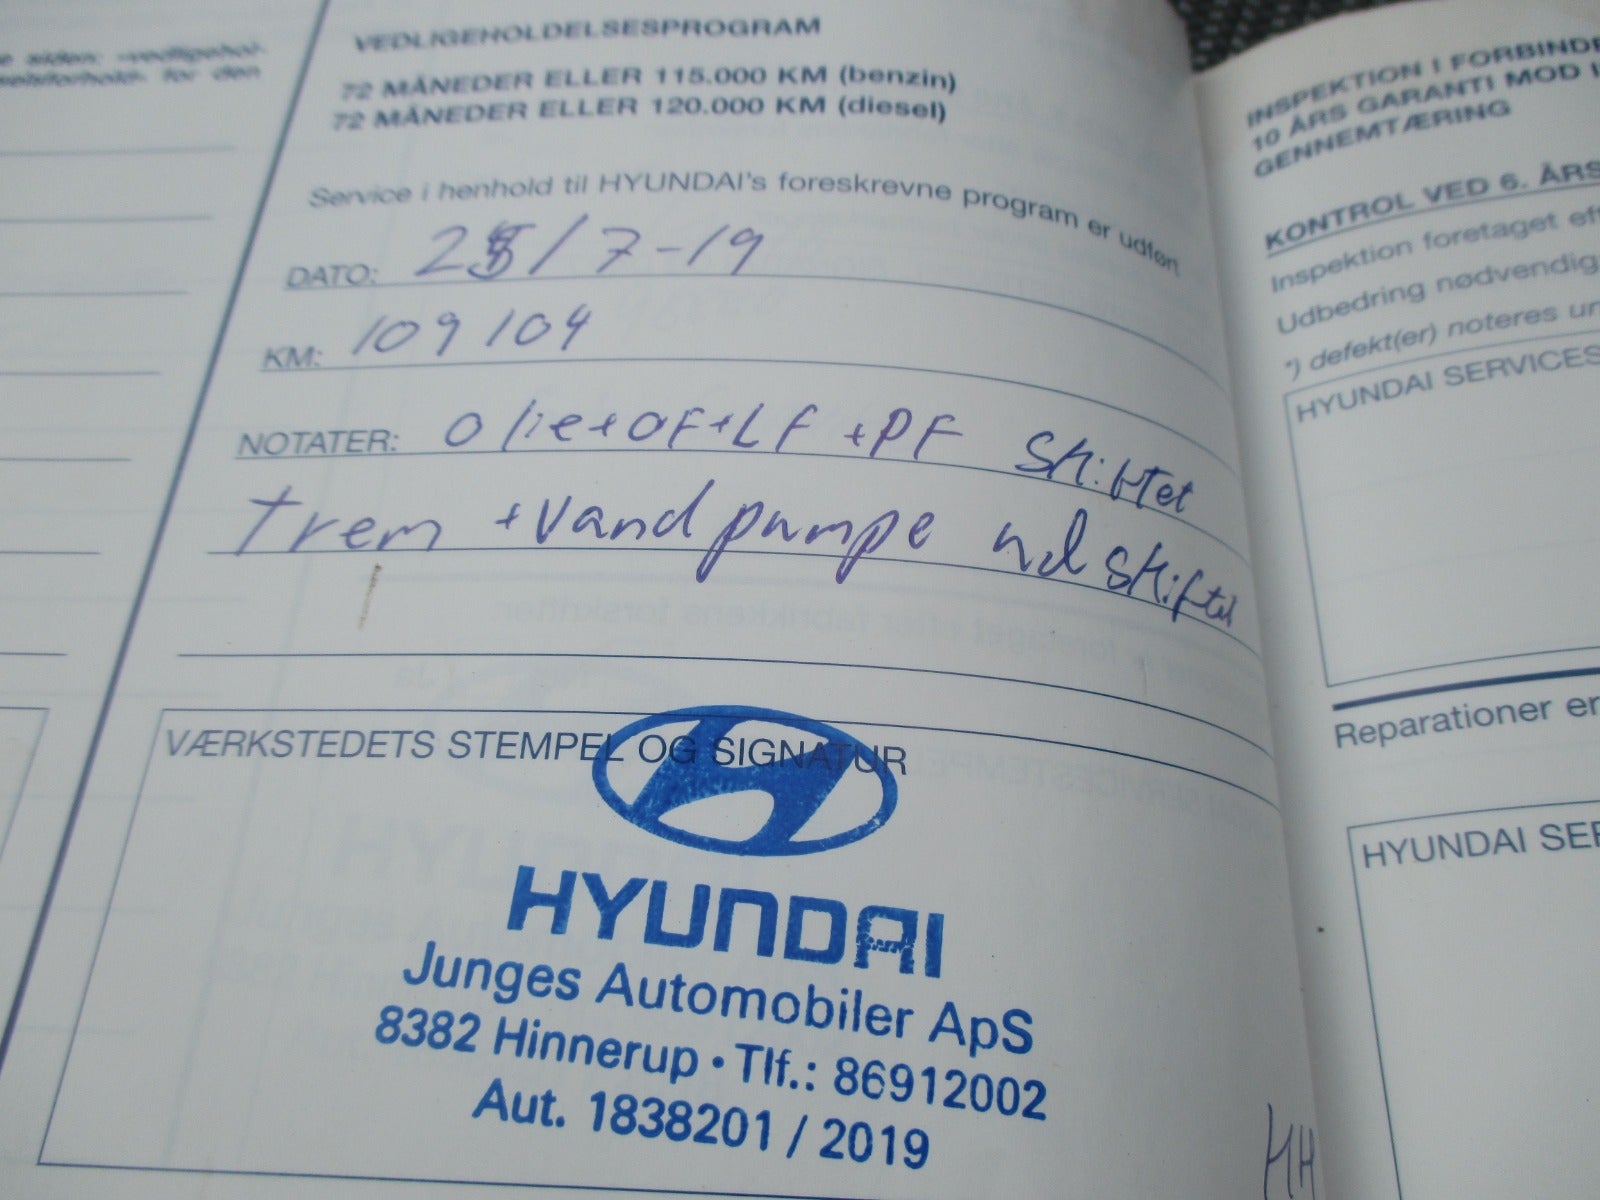 e siden: »vedligehol-
selsforhold« for den
VEDLIGEHOLDELSESPROGRAM
72 MÅNEDER ELLER 115.000 KM (benzin)
72 MÅNEDER ELLER 120.000 KM (diesel)
Service i henhold til HYUNDAI's foreskrevne program er udført
DATO: 25/7-19
KM: 109104
NOTATER: Olie+OF+LF+PF Skiftet
trem +Vandpumpe ud skiftet
VÆRKSTEDETS STEMPEL OG SIGNATUR
HYUNDAI
Junges Automobiler ApS
8382 Hinnerup • Tlf.: 86912002
Aut. 1838201 / 2019
HH
INSPEKTION I FORBINDE
10 ÅRS GARANTI MOD I
GENNEMTÆRING
KONTROL VED 6. ÅRS
Inspektion foretaget ef
Udbedring nødvendig
*) defekt(er) noteres un
HYUNDAI SERVICES
Reparationer er
HYUNDAI SER